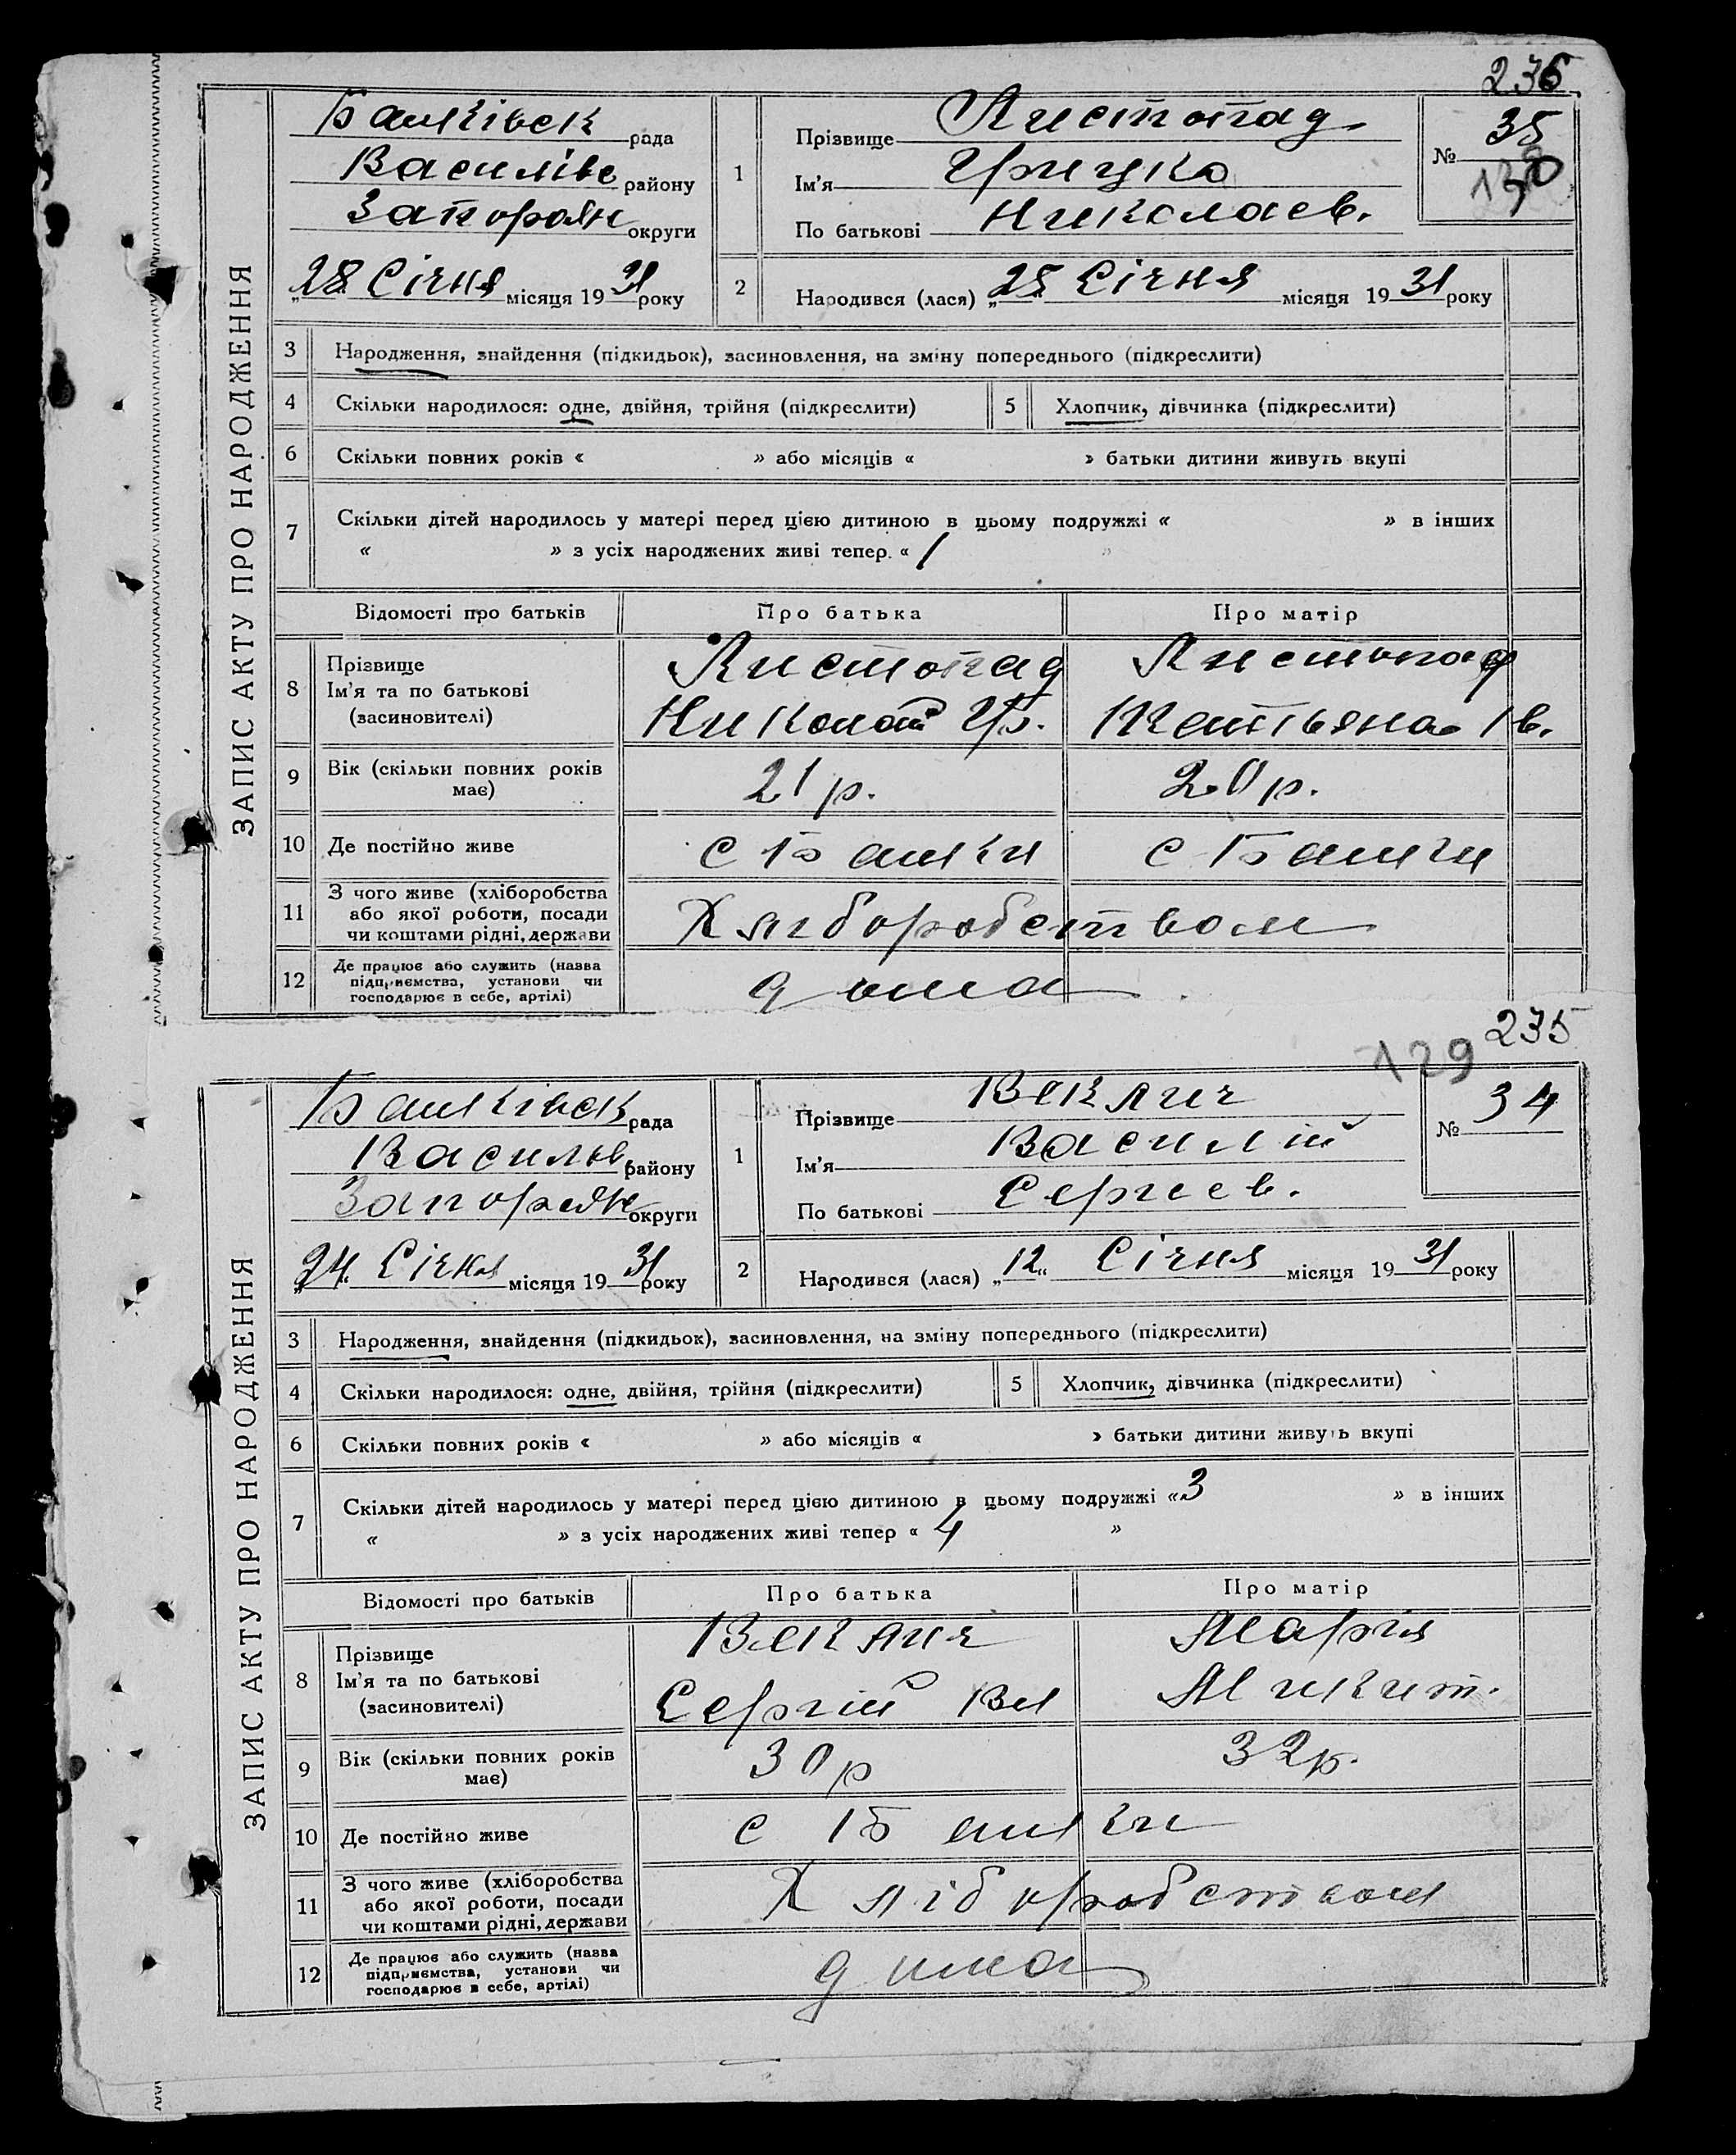 236
ЗАПИС АКТУ ПРО НАРОДЖЕННЯ
Балківськ рада
Василів району
Запорож округи
„28 Січня місяця 1931 року
1 Прізвище Листопад
Ім'я Грицко
По батькові Николаев.
№ 35
130
2 Народився (лася) „25 Січня місяця 1931 року
3 Народження, знайдення (підкидьок), засиновлення, на зміну попереднього (підкреслити)
4 Скільки народилося: одне, двійня, трійня (підкреслити) 5 Хлопчик, дівчинка (підкреслити)
6 Скільки повних років « » або місяців « » батьки дитини живуть вкупі
7 Скільки дітей народилось у матері перед цією дитиною в цьому подружжі « » в інших
« » з усіх народжених живі тепер. « 1 »
Відомості про батьків Про батька Про матір
8 Прізвище Листопад Листопад
Ім'я та по батькові
(засновителі) Николай Гр. Ів.
9 Вік (скільки повних років має) 21 р. 20 р.
10 Де постійно живе с Балки с Балки
11 З чого живе (хліборобства
або якої роботи, посади
чи коштами рідні, держави Хліборобством
12 Де працює або служить (назва
підприємства, установи чи
господарює в себе, артілі) дома
235
129
ЗАПИС АКТУ ПРО НАРОДЖЕННЯ
Балківск рада
Васильв. району
Запорож округи
„24„ Січня місяця 1931 року
1 Прізвище Веклич
Ім'я Василій
По батькові Сергіев.
№ 34
2 Народився (лася) „12„ Січня місяця 1931 року
3 Народження, знайдення (підкидьок), засиновлення, на зміну попереднього (підкреслити)
4 Скільки народилося: одне, двійня, трійня (підкреслити) 5 Хлопчик, дівчинка (підкреслити)
6 Скільки повних років « » або місяців « » батьки дитини живуть вкупі
7 Скільки дітей народилось у матері перед цією дитиною в цьому подружжі «3 » в інших
« » з усіх народжених живі тепер « 4 »
Відомості про батьків Про батька Про матір
8 Прізвище Веклич Марія
Ім'я та по батькові
(засиновителі) Сергій Вл Микит.
9 Вік (скільки повних років має) 30 р 32 р.
10 Де постійно живе с Балки
11 З чого живе (хліборобства
або якої роботи, посади
чи коштами рідні, держави Хліборобством
12 Де працює або служить (назва
підприємства, установи чи
господарює в себе, артілі) дома